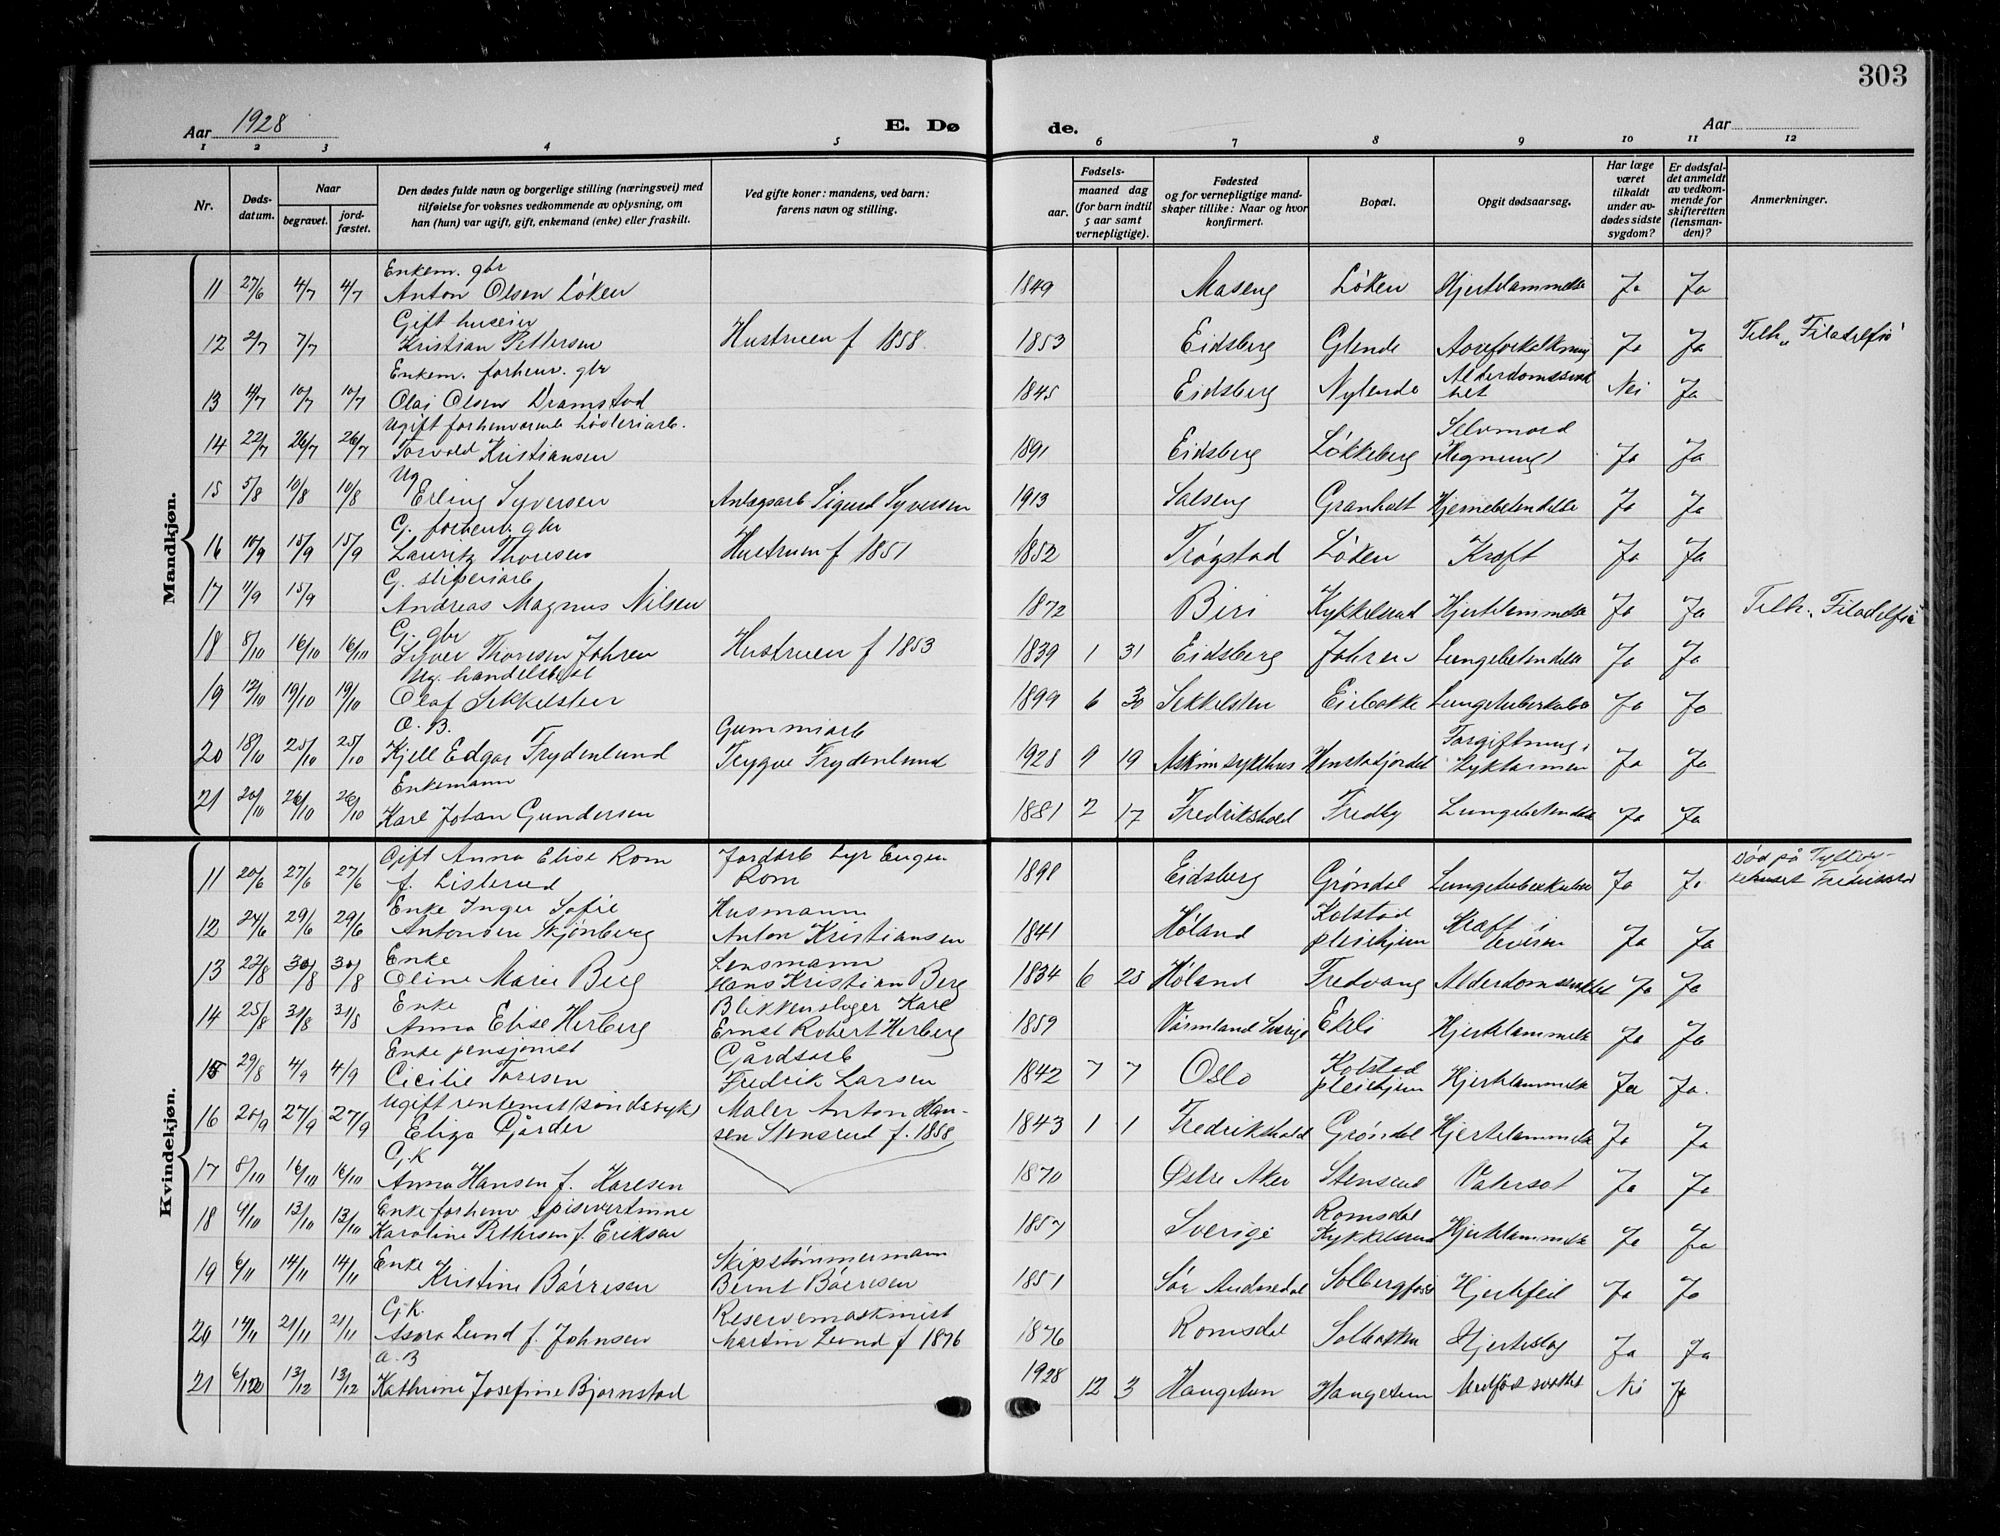 303
Aar 1928
E. Dø
de.
Aar
1 2 3 4 5 6 7 8 9 10 11 12
Nr.
Dødsdatum.
Naar
begravet.
jordfæstet.
Den dødes fulde navn og borgerlige stilling (næringsvei) med
tilføielse for voksnes vedkommende av oplysning, om
han (hun) var ugift, gift, enkemand (enke) eller fraskilt.
Ved gifte koner: mandens, ved barn:
farens navn og stilling.
Fødsels-
aar.
maaned dag
(for barn indtil
5 aar samt
vernepligtige).
Fødested
og for vernepligtige mand-
skaper tillike: Naar og hvor
konfirmert.
Bopæl.
Opgit dødsaarsag.
Har læge
været
tilkaldt
under av-
dødes sidste
sygdom?
Er dødsfal-
det anmeldt
av vedkom-
mende for
skifteretten
(lensman-
den)?
Anmerkninger.
Mandkjøn.
Enkem. gbr
11 27/6 4/7 4/7 Anton Olsen Løken 1849 Maseng Løken Hjertelammelse Ja Ja
Gift huseier
12 2/7 7/7 Kristian Pettersen Hustruen f 1858. 1853 Eidsberg Glende Aareforkalkning Ja Ja Telh. "Filadelfia"
Enkem. forhenv. gbr
13 4/7 10/7 10/7 Olai Olsen Dramstad 1845 Eidsberg Nylende Alderdomssvak
het Nei Ja
Ugift forhenværende
14 22/7 26/7 26/7 Torvald Kristiansen 1891 Eidsberg Løkkeberg Selvmord
(Hegning) Ja Ja
Ug
15 5/8 10/8 10/8 Erling Syversen Anlegsarb Sigurd Syversen 1913 Salseng Granholt Hjernebetendelse Ja Ja
G. forhenv. gbr
16 10/9 15/9 15/9 Lauritz Thoresen Hustruen f 1851 1852 Trøgstad Løken Kræft Ja Ja
G. sliperiarb
17 11/9 15/9 Andreas Magnus Nilsen 1872 Biri Kykkelsrud Hjertelammelse Ja Ja Telh. "Filadelfia"
G. gbr
18 8/10 16/10 16/10 Syver Thoresen Johren Hustruen f 1853 1839 1 31 Eidsberg Johren Lungebetendelse Ja Ja
Ug. handelsbest
19 12/10 19/10 19/10 Olaf Sekkelsten 1899 6 30 Sekkelsten Eiebakke Lungetuberkulose Ja Ja
O. B. Gummiarb
20 18/10 25/10 25/10 Kjell Edgar Frydenlund Trygve Frydenlund 1928 9 19 Askim sykehus Henstafjordet Forgiftning i
tyktarmen Ja Ja
Enkemann
21 20/10 26/10 26/10 Karl Johan Gundersen 1881 2 17 Fredrikshald Fredly Lungebetendelse Ja Ja
Kvindekjøn.
11 20/6 27/6 27/6 Gift Anna Elise Rom
f. Listerud Jordarb Syr Eugen
Rom 1898 Eidsberg Grøndal Lungetuberkulose Ja Ja Død på Tylke-
sykehuset Fredrikstad
12 24/6 29/6 29/6 Enke Inger Sofie
Antonsen Skjønberg Husmann
Anton Kristiansen 1841 Høland Kolstad
pleiehjem Kræft i
leveren Ja Ja
13 22/8 30/8 30/8 Enke
Oline Marie Berg Lensmann
Hans Kristian Berg 1834 6 25 Høland Fredvang Alderdomssvakhet Ja Ja
14 25/8 31/8 31/8 Enke
Anna Elise Herberg Blikkenslager Karl
Ernst Robert Herberg 1859 Värmland Sverige Ekeli Hjertelammelse Ja Ja
15 29/8 4/9 4/9 Enke pensjonist
Cicilie Toresen Gårdsarb
Fredrik Larsen 1842 7 7 Oslo Kolstad
pleiehjem Hjertelammelse Ja Ja.
16 20/9 27/9 27/9 Ugift rentenist (sindssyk)
Eliza Gjårder Maler Anton Han-
sen Stensrud f. 1858 1843 1 1 Fredrikshald Grøndal Hjertelammelse Ja Ja
17 8/10 16/10 16/10 G.K
Anna Hansen f. Karlsen 1870 Østre Aker Stensrud Vatersot Ja Ja
18 9/10 13/10 13/10 Enke forhenv spisevertinne
Karoline Pettersen f. Eriksen 1857 Sverige Romsdal
Kykkelsrud Hjertelammelse Ja Ja
19 6/11 14/11 14/11 Enke
Kristine Børresen Skipstømmermann
Bernt Børresen 1851 Sør Audnedal Solbergfoss Hjertefeil Ja Ja
20 14/11 21/11 21/11 G.K.
Asora Lund f. Johnsen Reservemaskinist
Martin Lund f 1876 1876 Romsdal Solbakken Hjerteslag Ja Ja
21 6/12 13/12 13/12 O.B
Kathrine Josefine Bjørnstad 1928 12 3 Haugetun Haugetun Medfødt svakhet Nei Ja